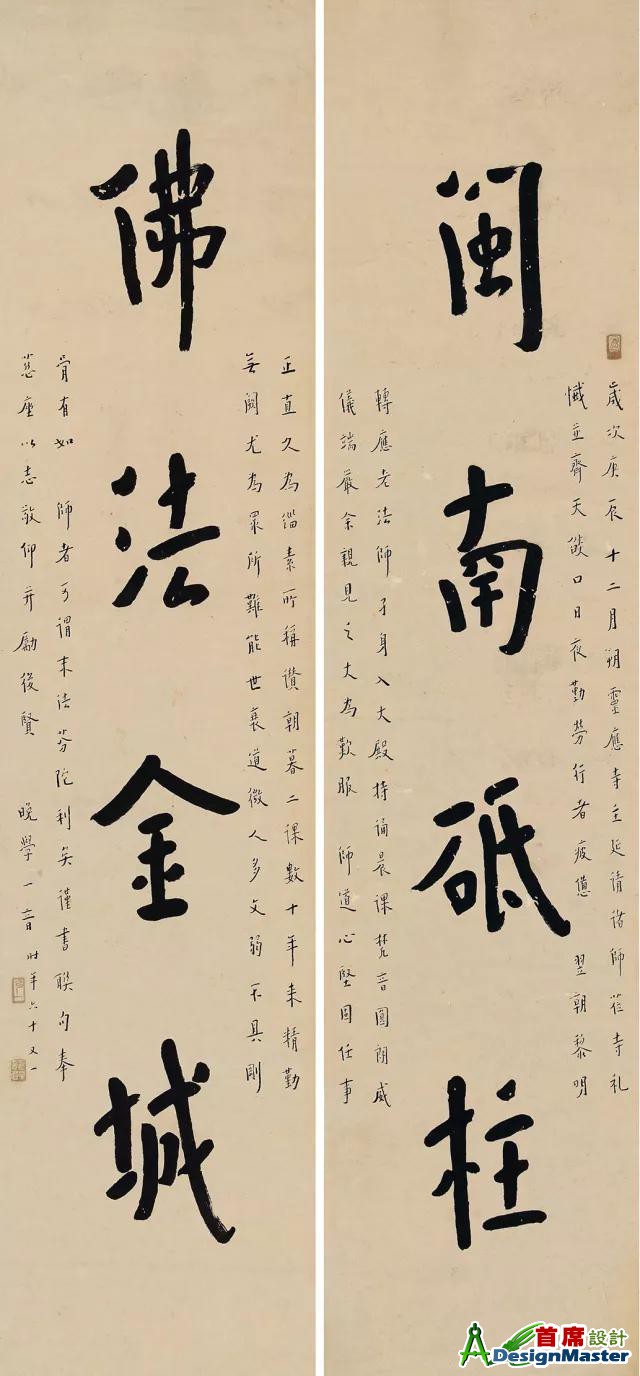 閩南砥柱
歲次庚辰十二月朔靈應寺主延請諸師莅寺礼
懺並齋天燄口日夜勤勞行者疲憊 翌朝黎明
轉應老法師孑身入大殿持誦晨課梵音圓朗威
儀端嚴余親見之大為歎服 師道心堅固任事
佛法金城
正直久為緇素所稱讚朝暮二課數十年來精勤
無闕尤為眾所難能世衰道微人多文弱不具剛
骨有如 師者可謂末法芬陀利矣謹書聯句奉
慈座以志敬仰并勵後賢 晚學一音時年六十又一
首席設計
ADesignMaster